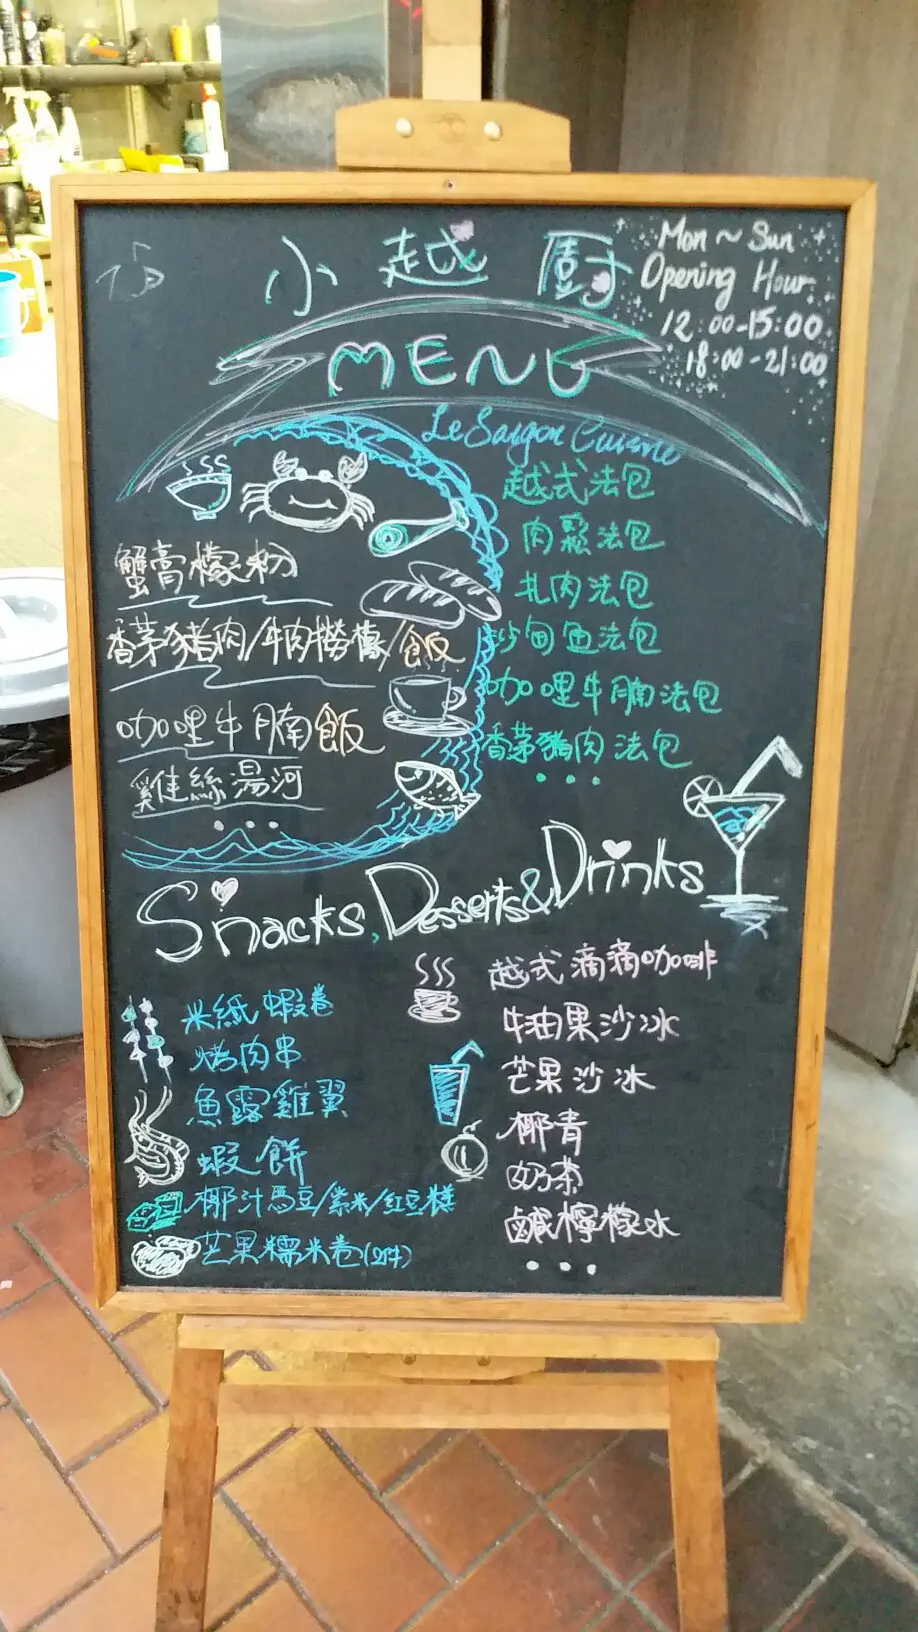 小越廚
Mon ~ Sun
Opening Hour
12:00-15:00
18:00-21:00
MENU
Le Saigon Cuisine
蟹膏檬粉
香茅豬肉/牛肉撈檬/飯
咖哩牛腩飯
雞絲湯河
...
越式法包
肉鬆法包
扎肉法包
沙甸魚法包
咖哩牛腩法包
香茅豬肉法包
...
Snacks, Desserts & Drinks
米紙蝦卷
烤肉串
魚露雞翼
蝦餅
椰汁馬豆/紫米/紅豆糕
芒果糯米卷(2件)
越式滴滴咖啡
牛油果沙冰
芒果沙冰
椰青
奶茶
鹹檸檬水
...